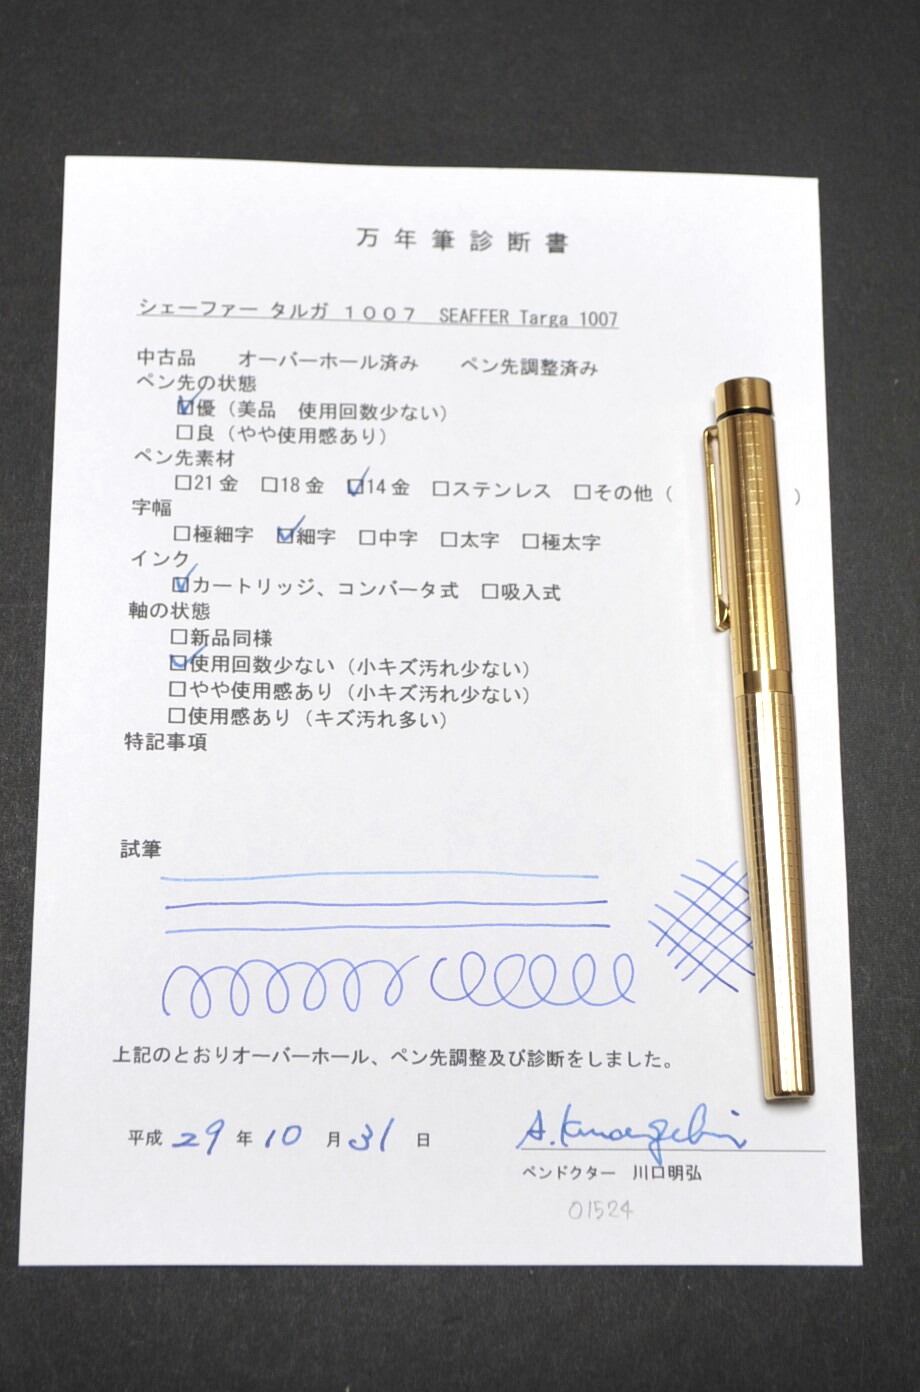 万年筆診断書
シェーファー タルガ １００７　SEAFFER Targa 1007
中古品　　オーバーホール済み　　ペン先調整済み
ペン先の状態
☑優（美品　使用回数少ない）
□良（やや使用感あり）
ペン先素材
□21金　□18金　☑14金　□ステンレス　□その他（　　　　　）
字幅
□極細字　☑細字　□中字　□太字　□極太字
インク
☑カートリッジ、コンバータ式　□吸入式
軸の状態
□新品同様
☑使用回数少ない（小キズ汚れ少ない）
□やや使用感あり（小キズ汚れ少ない）
□使用感あり（キズ汚れ多い）
特記事項
試筆
上記のとおりオーバーホール、ペン先調整及び診断をしました。
平成 29 年 10 月 31 日
ペンドクター　川口明弘
01524